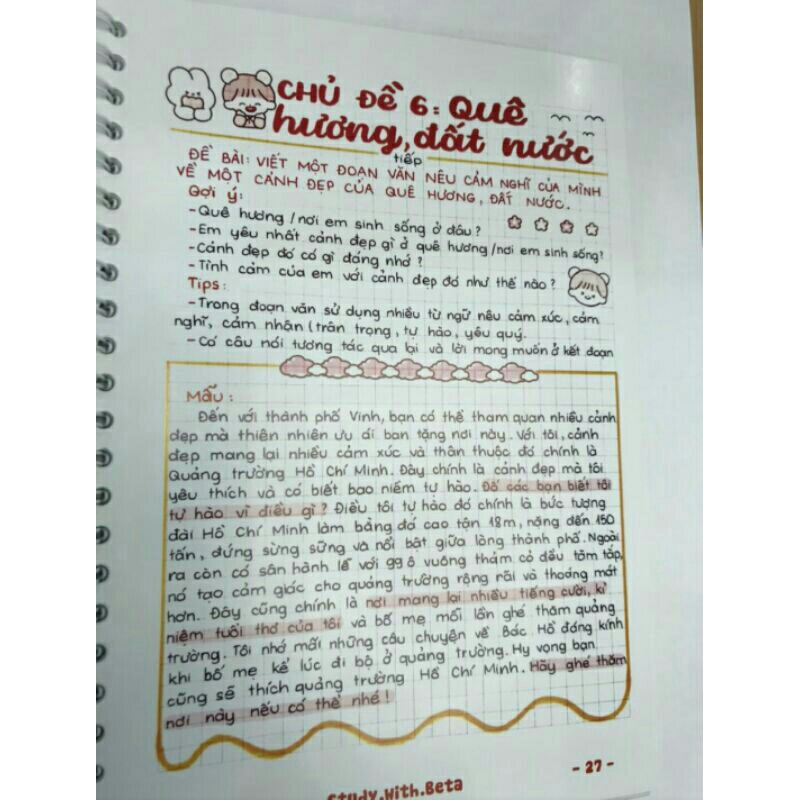 CHỦ ĐỀ 6: Quê
hương, đất nước
tiếp
ĐỀ BÀI: VIẾT MỘT ĐOẠN VĂN NÊU CẢM NGHĨ CỦA MÌNH
VỀ MỘT CẢNH ĐẸP CỦA QUÊ HƯƠNG, ĐẤT NƯỚC.
Gợi ý:
-Quê hương/nơi em sinh sống ở đâu?
-Em yêu nhất cảnh đẹp gì ở quê hương/nơi em sinh sống?
-Cảnh đẹp đó có gì đáng nhớ?
-Tình cảm của em với cảnh đẹp đó như thế nào?
Tips:
-Trong đoạn văn sử dụng nhiều từ ngữ nêu cảm xúc, cảm
nghĩ, cảm nhận (trân trọng, tự hào, yêu quý.
-Có câu nói tương tác qua lại và lời mong muốn ở kết đoạn
Mẫu:
Đến với thành phố Vinh, bạn có thể tham quan nhiều cảnh
đẹp mà thiên nhiên ưu ái ban tặng nơi này. Với tôi, cảnh
đẹp mang lại nhiều cảm xúc và thân thuộc đó chính là
Quảng trường Hồ Chí Minh. Đây chính là cảnh đẹp mà tôi
yêu thích và có biết bao niềm tự hào. Đố các bạn biết tôi
tự hào vì điều gì? Điều tôi tự hào đó chính là bức tượng
đài Hồ Chí Minh làm bằng đá cao tận 18m, nặng đến 150
tấn, đứng sừng sững và nổi bật giữa lòng thành phố. Ngoài
ra còn có sân hành lễ với 99 ô vuông thảm cỏ đều tăm tắp,
nó tạo cảm giác cho quảng trường rộng rãi và thoáng mát
hơn. Đây cũng chính là nơi mang lại nhiều tiếng cười, kỉ
niệm tuổi thơ của tôi và bố mẹ mỗi lần ghé thăm quảng
trường. Tôi nhớ mãi những câu chuyện về Bác Hồ đáng kính
khi bố mẹ kể lúc đi bộ ở quảng trường. Hy vọng bạn
cũng sẽ thích quảng trường Hồ Chí Minh. Hãy ghé thăm
nơi này nếu có thể nhé!
-27-
Study.With.Beta